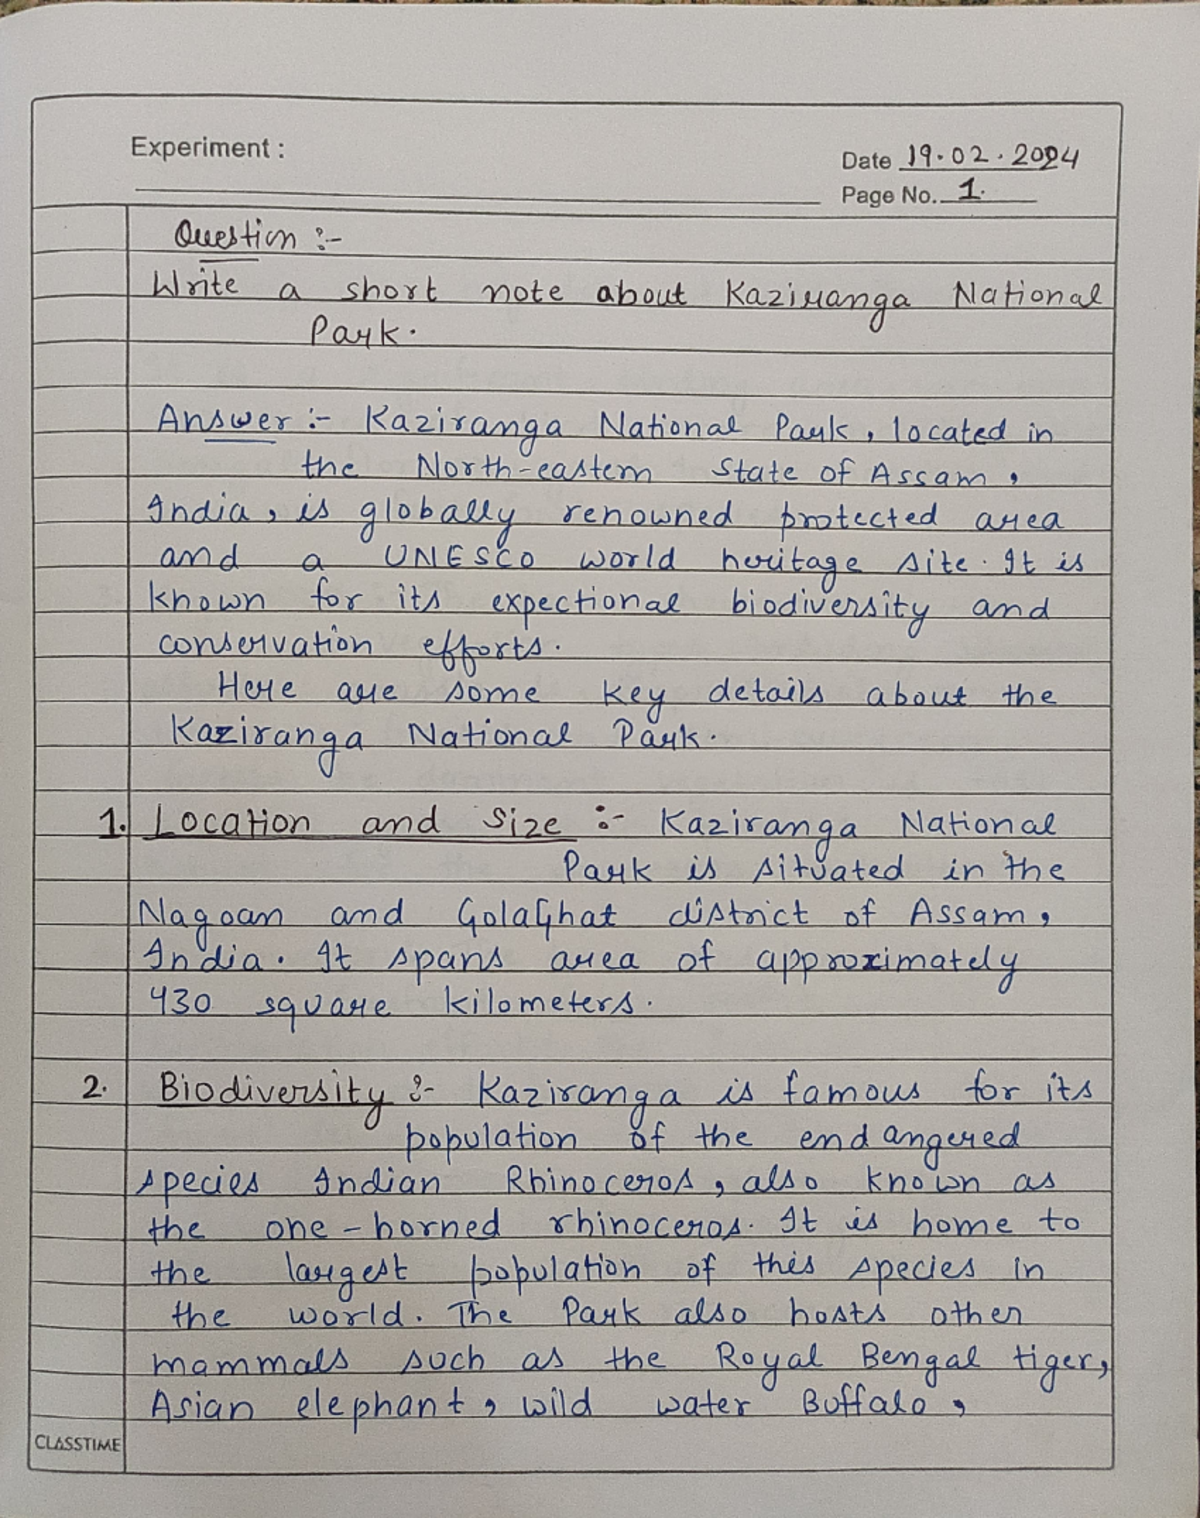 Experiment :
Date 19.02.2024
Page No. 1.
Question :-
Write a short note about Kaziranga National
Park.
Answer :- Kaziranga National Park, located in
the North-eastern State of Assam,
India, is globally renowned protected area
and a UNESCO world heritage site. It is
known for its expectional biodiversity and
conservation efforts.
Here are some key details about the
Kaziranga National Park.
1. Location and Size :- Kaziranga National
Park is situated in the
Nagoan and GolaGhat district of Assam,
India. It spans area of approximately
430 square kilometers.
2. Biodiversity :- Kaziranga is famous for its
population of the endangered
species Indian Rhinoceros, also known as
the one-horned rhinoceros. It is home to
the largest population of this species in
the world. The Park also hosts other
mammals such as the Royal Bengal tiger,
Asian elephant, wild water Buffalo,
CLASSTIME